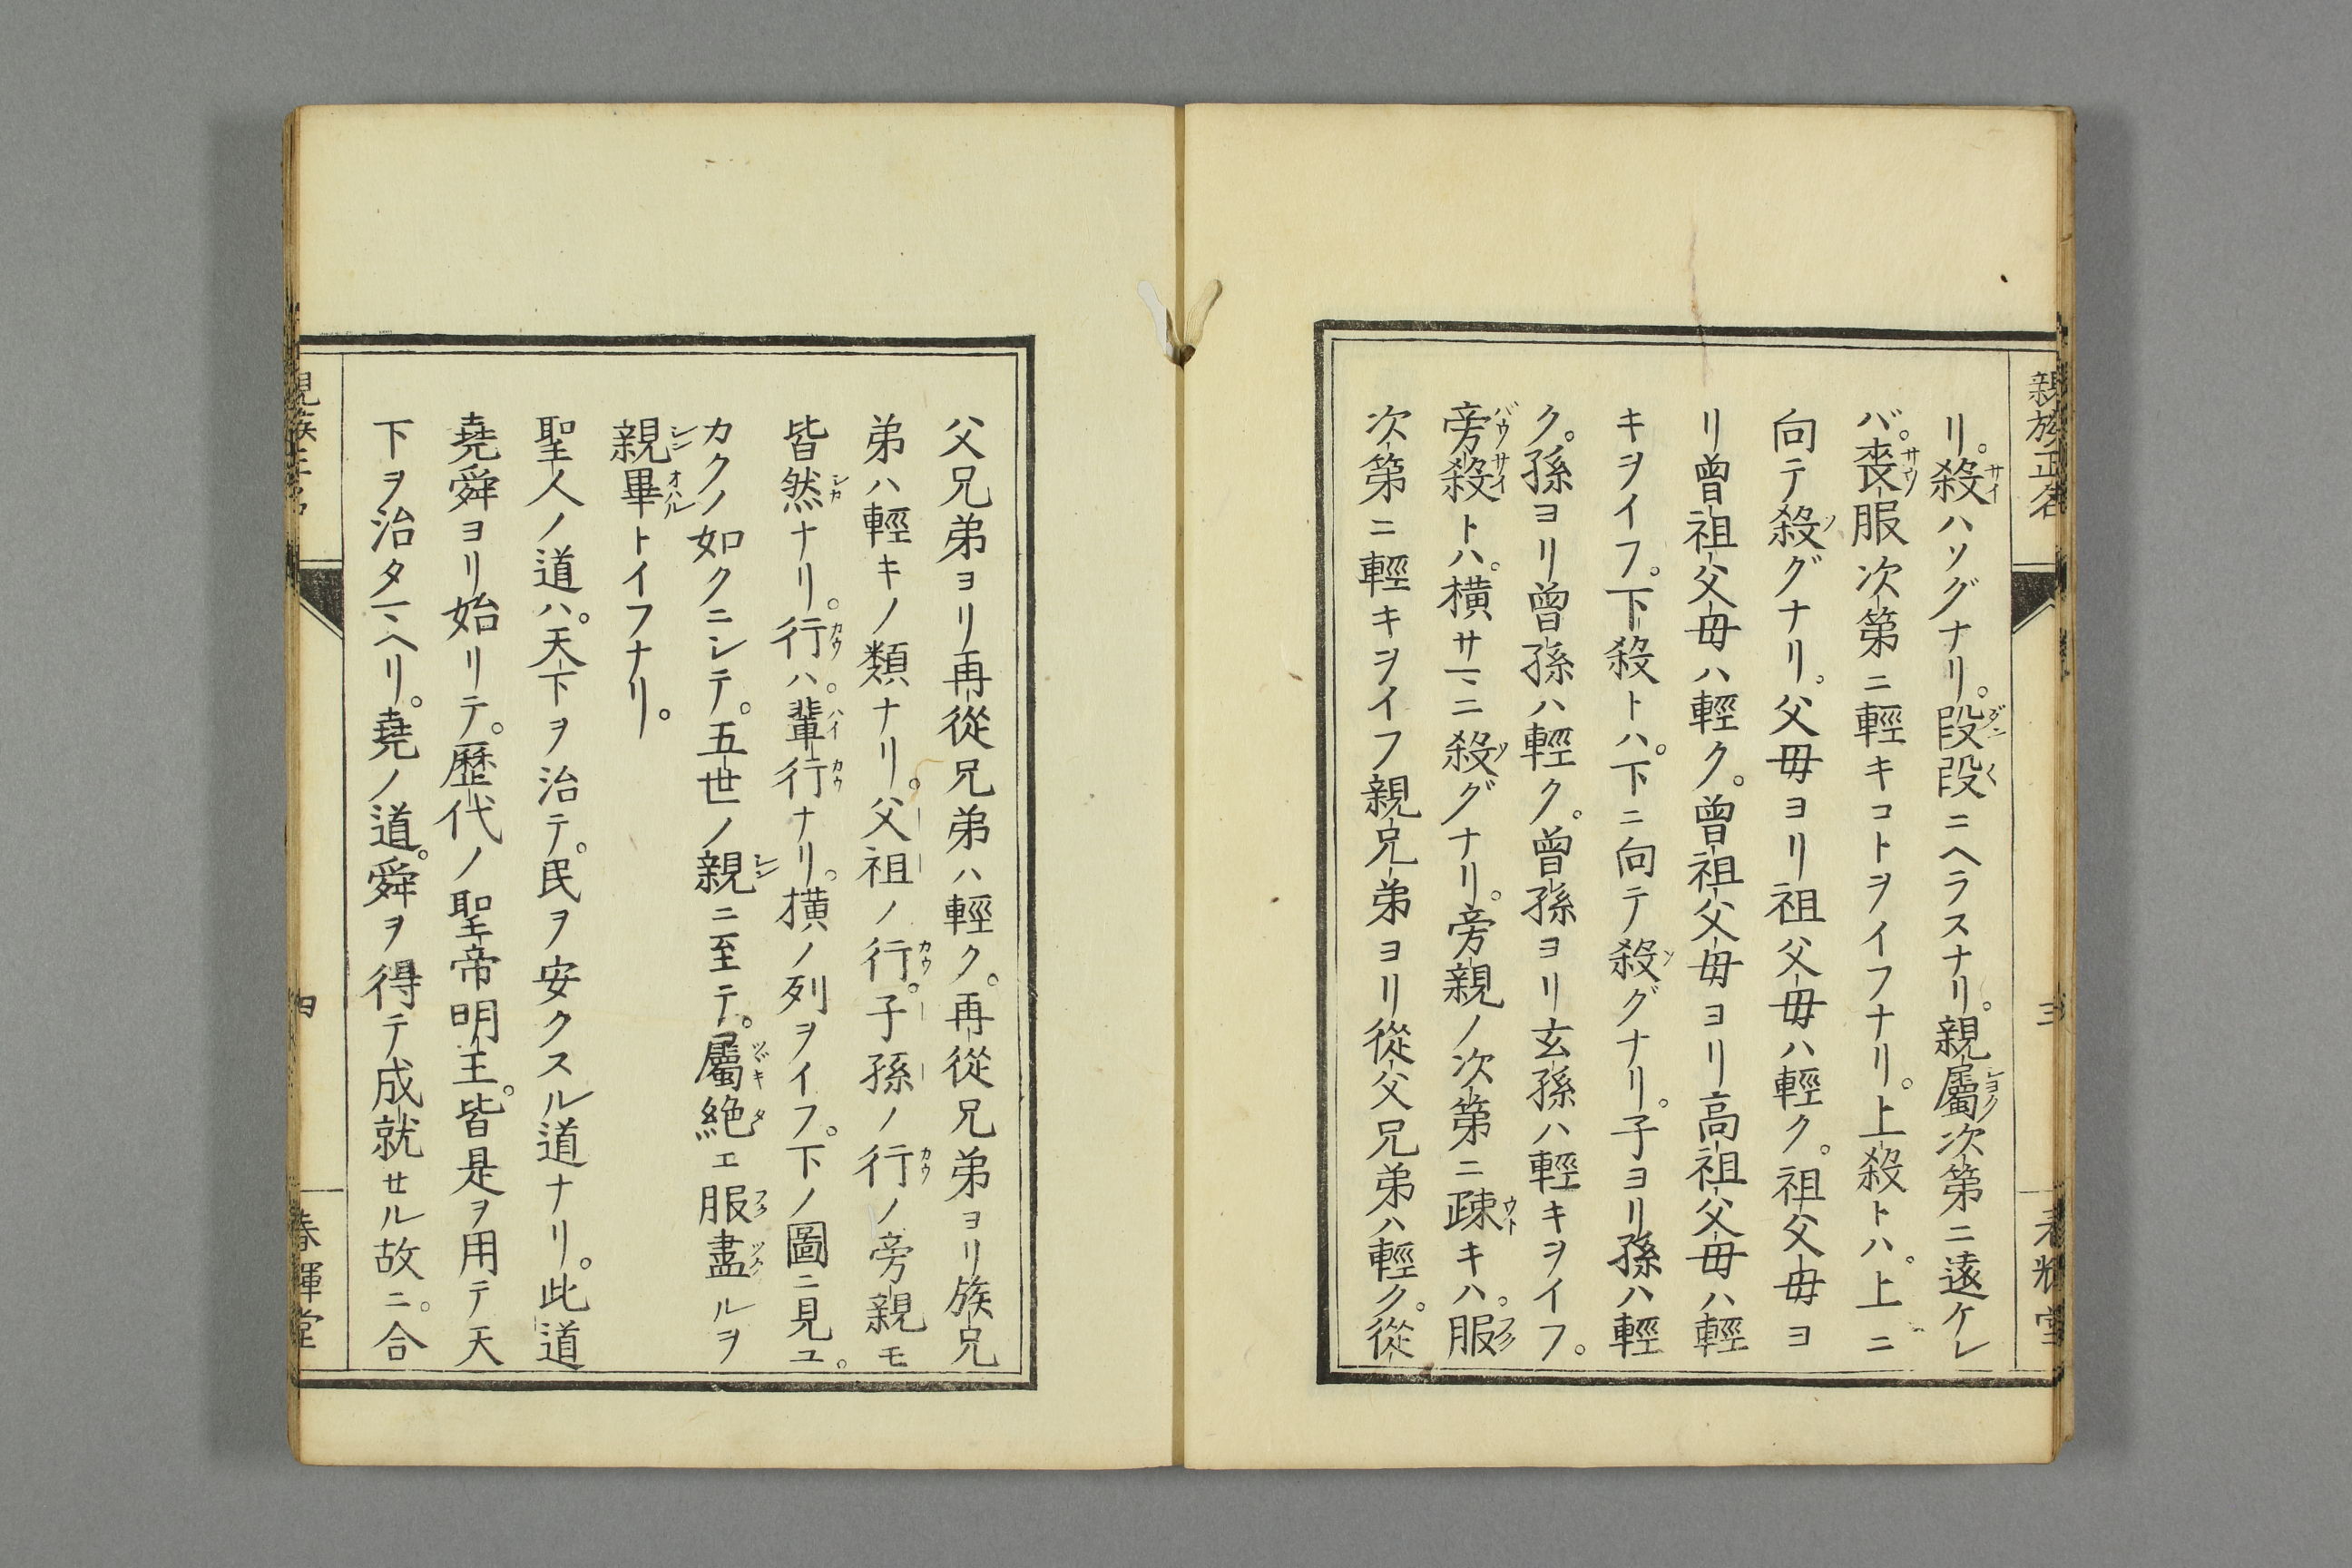 親族正名
三
春暉堂
リ。殺ハソグナリ。段段ニヘラスナリ。親屬次第ニ遠ケレ
バ。喪服次第ニ輕キコトヲイフナリ。上殺トハ。上ニ
向テ殺グナリ。父母ヨリ祖父母ハ輕ク。祖父母ヨ
リ曾祖父母ハ輕ク。曾祖父母ヨリ高祖父母ハ輕
キヲイフ。下殺トハ。下ニ向テ殺グナリ。子ヨリ孫ハ輕
ク。孫ヨリ曾孫ハ輕ク。曾孫ヨリ玄孫ハ輕キヲイフ。
旁殺トハ。橫サマニ殺グナリ。旁親ノ次第ニ疎キハ。服
次第ニ輕キヲイフ親兄弟ヨリ從父兄弟ハ輕ク。從
父兄弟ヨリ再從兄弟ハ輕ク。再從兄弟ヨリ族兄
弟ハ輕キノ類ナリ。父祖ノ行。子孫ノ行ノ旁親モ
皆然ナリ。行ハ。輩行ナリ。橫ノ列ヲイフ。下ノ圖ニ見ユ。
カクノ如クニシテ。五世ノ親ニ至テ。屬絶エ服盡ルヲ
親畢トイフナリ。
聖人ノ道ハ。天下ヲ治テ。民ヲ安クスル道ナリ。此道
堯舜ヨリ始リテ。歷代ノ聖帝明王。皆是ヲ用テ天
下ヲ治タマヘリ。堯ノ道。舜ヲ得テ成就セル故ニ。合
親族正名
四
春暉堂